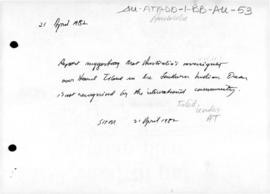 AU-ATADD-1-BB-AU-53
Honolulu
21 April 1982
Report suggesting that Australia's sovereignty
over Heard Island in the Southern Indian Ocean
is not recognised by the international community.
Filed
under
AT
21 April 1982